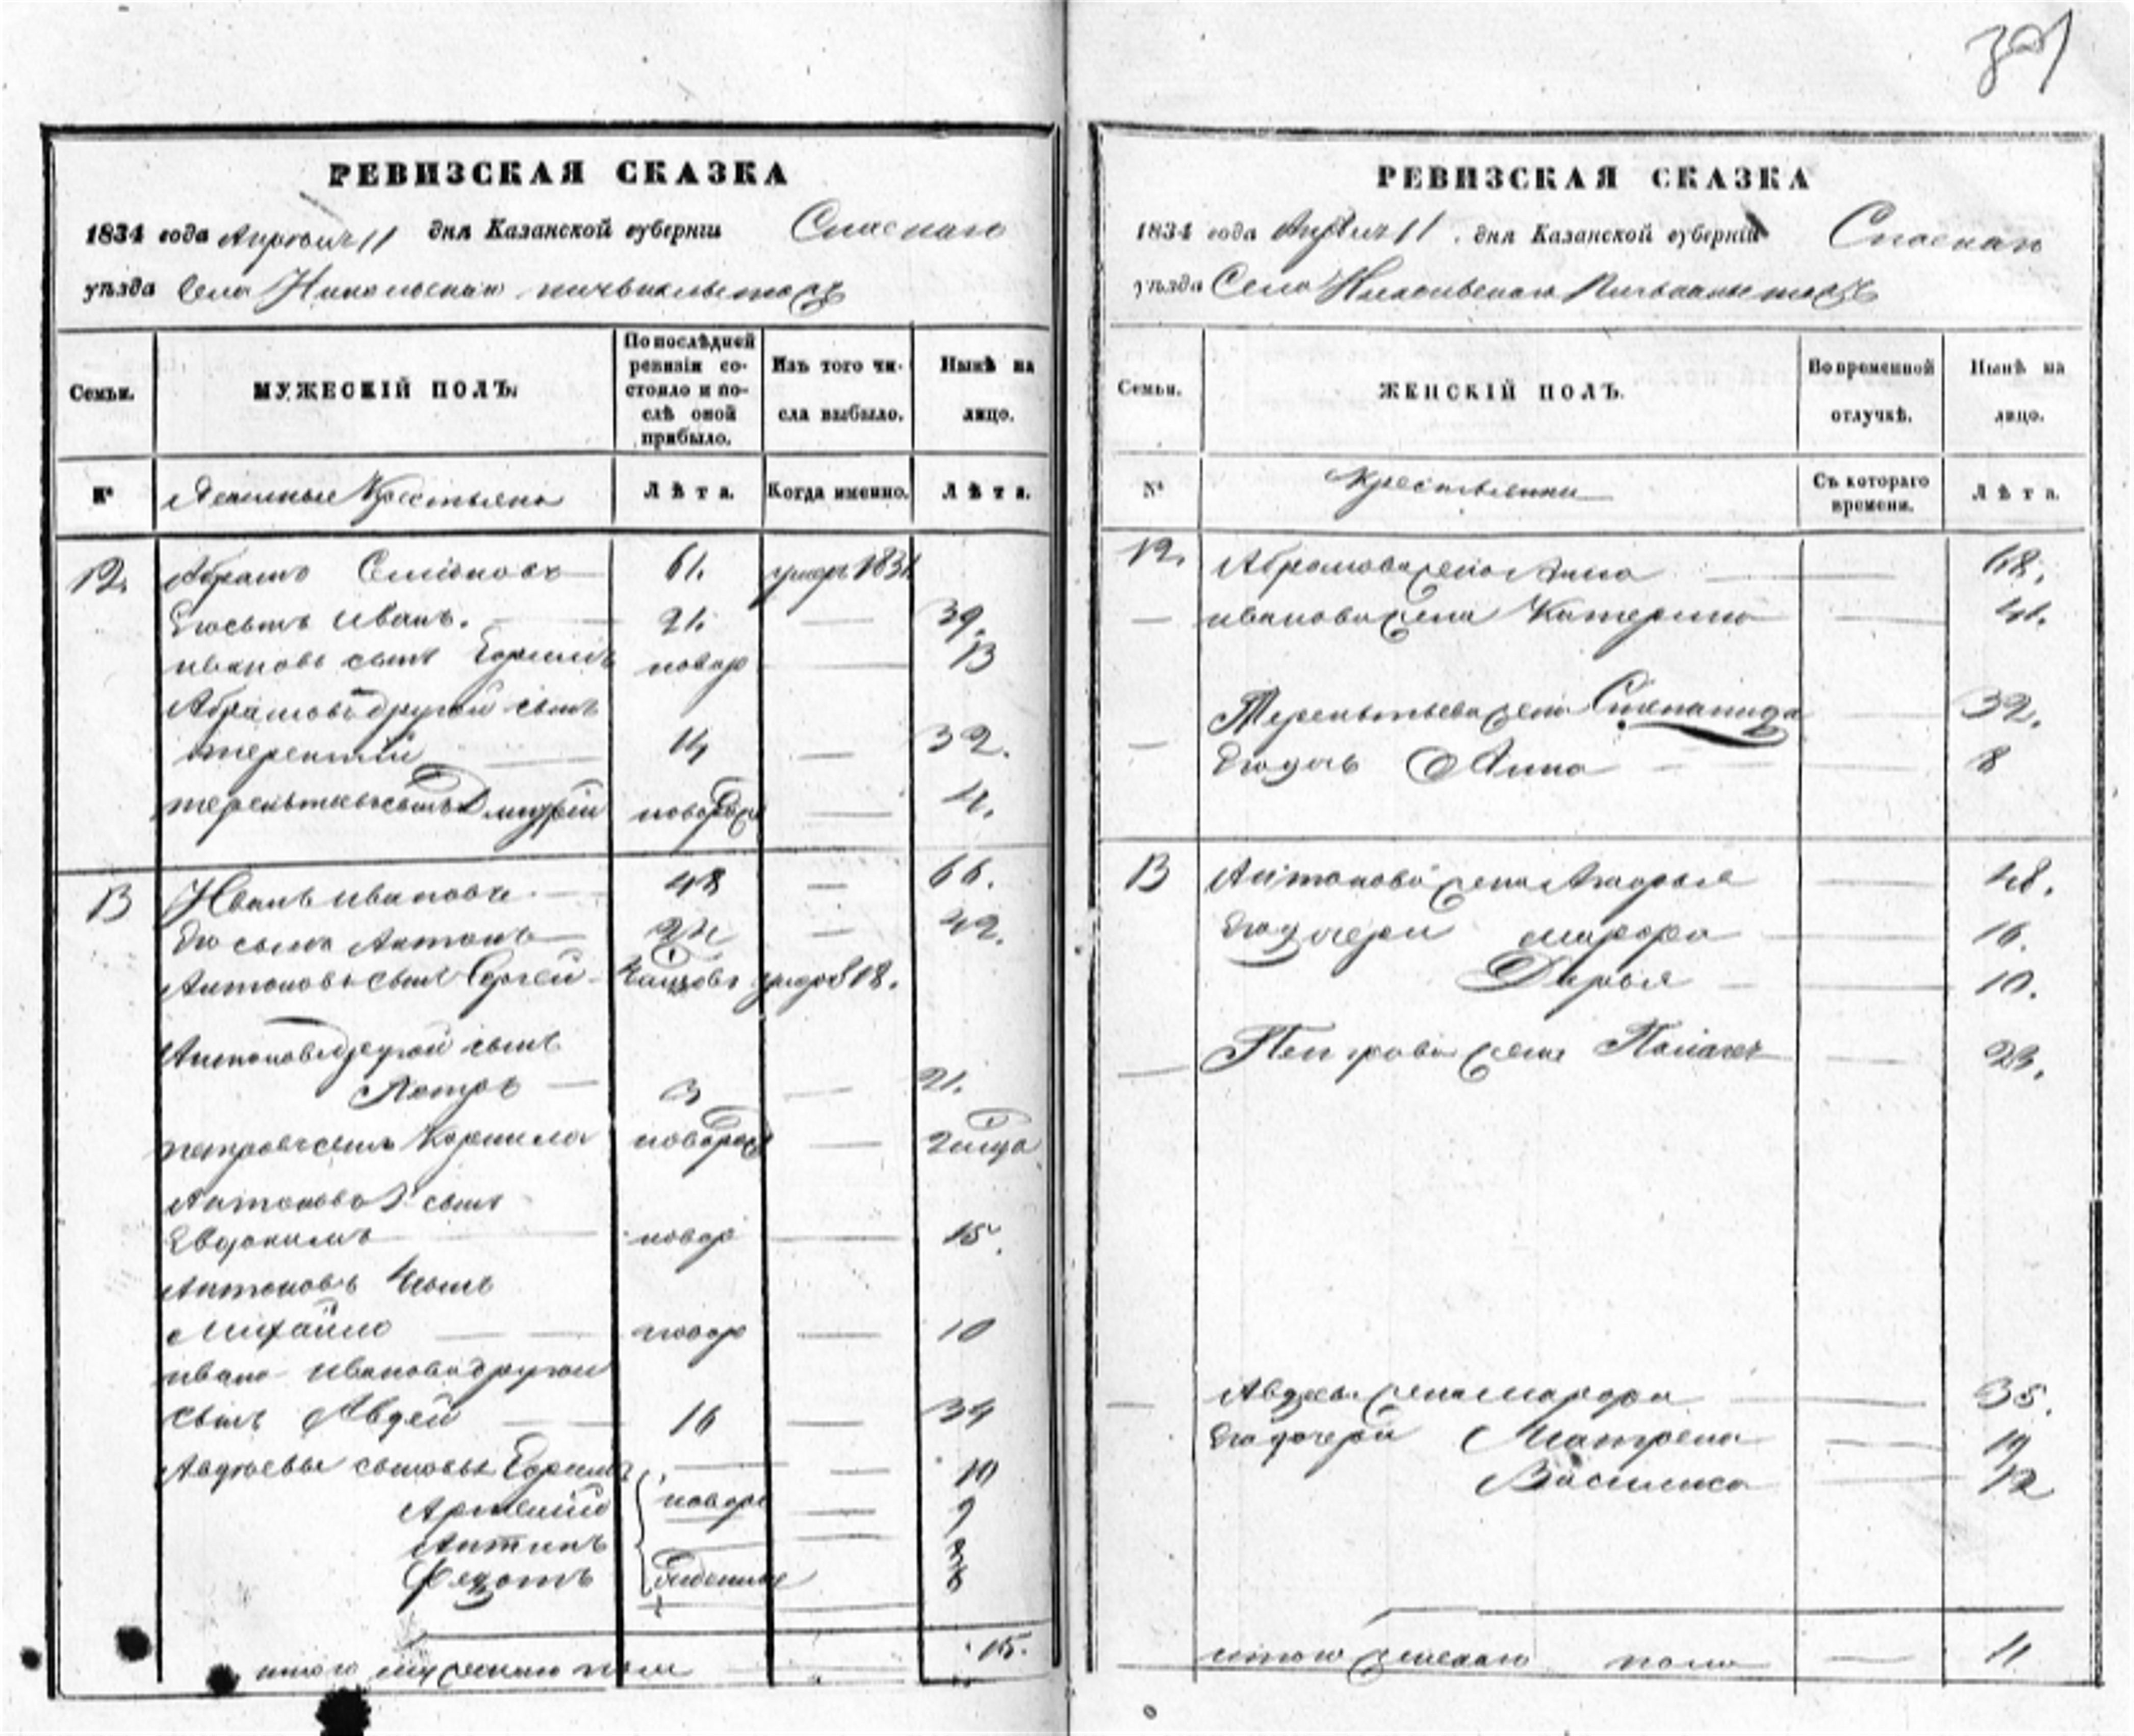 321
РЕВИЗСКАЯ СКАЗКА
1834 года Апреля 11 дня Казанской губерніи Спаскаго
уѣзда Села Никольскаго
Семьи.
МУЖЕСКІЙ ПОЛЪ.
По послѣдней ревизіи состояло и послѣ оной прибыло.
Изъ того числа выбыло.
Нынѣ на лицо.
№
Крестьяне
Лѣта.
Когда именно.
Лѣта.
12. Абрамъ Семіоновъ 61. умеръ 1831
Его сынъ Иванъ. 21. 39.
Ивановъ сынъ Ефремъ новор 13
Абрамовъ другой сынъ
терентій 14 32.
терентьевъ сынъ Дмитрій новорож 4.
13 Иванъ Ивановъ 48 66.
Его сынъ Антонъ 24 42.
Антоновъ сынъ Сергей 18.
Антоновъ другой сынъ
Петръ 3 21.
петровъ сынъ Корнила новорож 2 года
Антоновъ 3 сынъ
Евдокимъ новор 15.
Антоновъ 4 сынъ
Михайло новор 10
Ивана Иванова другой
сынъ Авдей 16 34
Авдѣевы сыновья Ефремъ 10
новоро 9
Антипъ 3
Федотъ
итого мужескаго пола 15.
РЕВИЗСКАЯ СКАЗКА
1834 года Апреля 11. дня Казанской губерніи Спаскаго
уѣзда Села Никольскаго
Семьи.
ЖЕНСКІЙ ПОЛЪ.
Во временной отлучкѣ.
Нынѣ на лицо.
№
Крестьянки
Съ котораго времени.
Лѣта.
12. Абрамова жена Анна 68.
Иванова жена Катерина 41.
Терентьева жена Степанида 32.
Его дочь Анна 8
13 Антонова жена 48.
Его дочери Марфа 16.
Дарья 10.
Петрова жена 23.
Авдѣева жена Марфа 35.
Его дочери Матрена 14
Василиса 12
итого женскаго пола 11